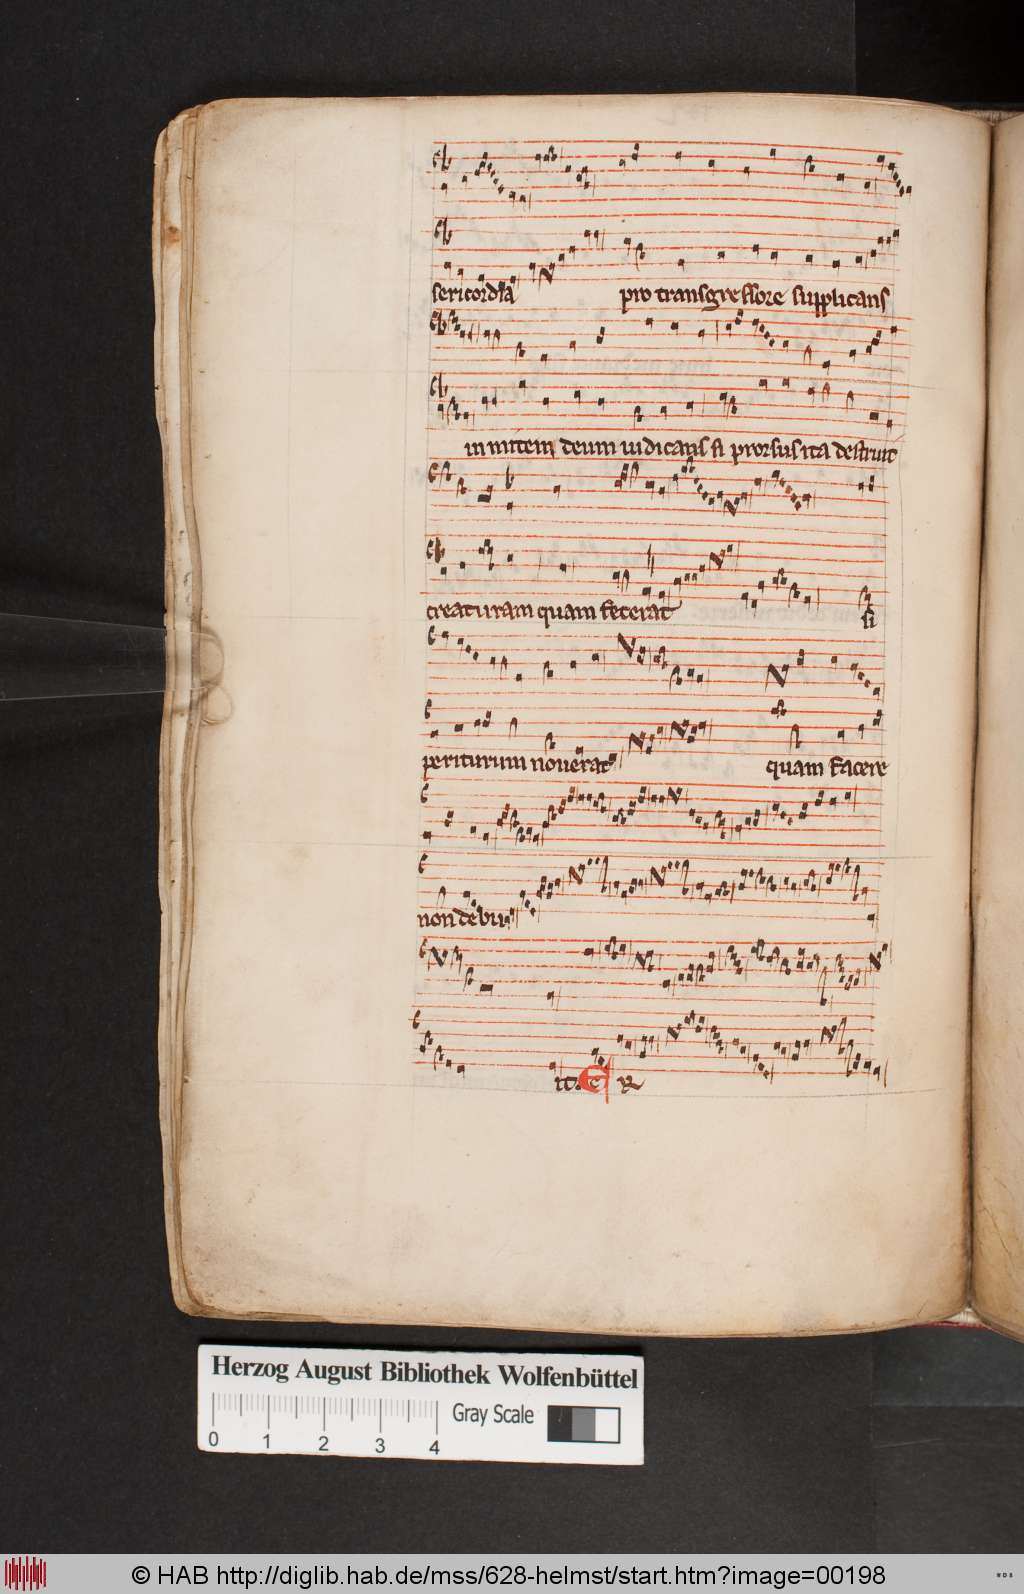 sericordia pro transgressore supplicans
in mitem deum iudicans si prorsus ita destruit
creaturam quam fecerat si
periturum noverat quam facere
non debu
it.
Herzog August Bibliothek Wolfenbüttel
Gray Scale
0 1 2 3 4
© HAB http://diglib.hab.de/mss/628-helmst/start.htm?image=00198